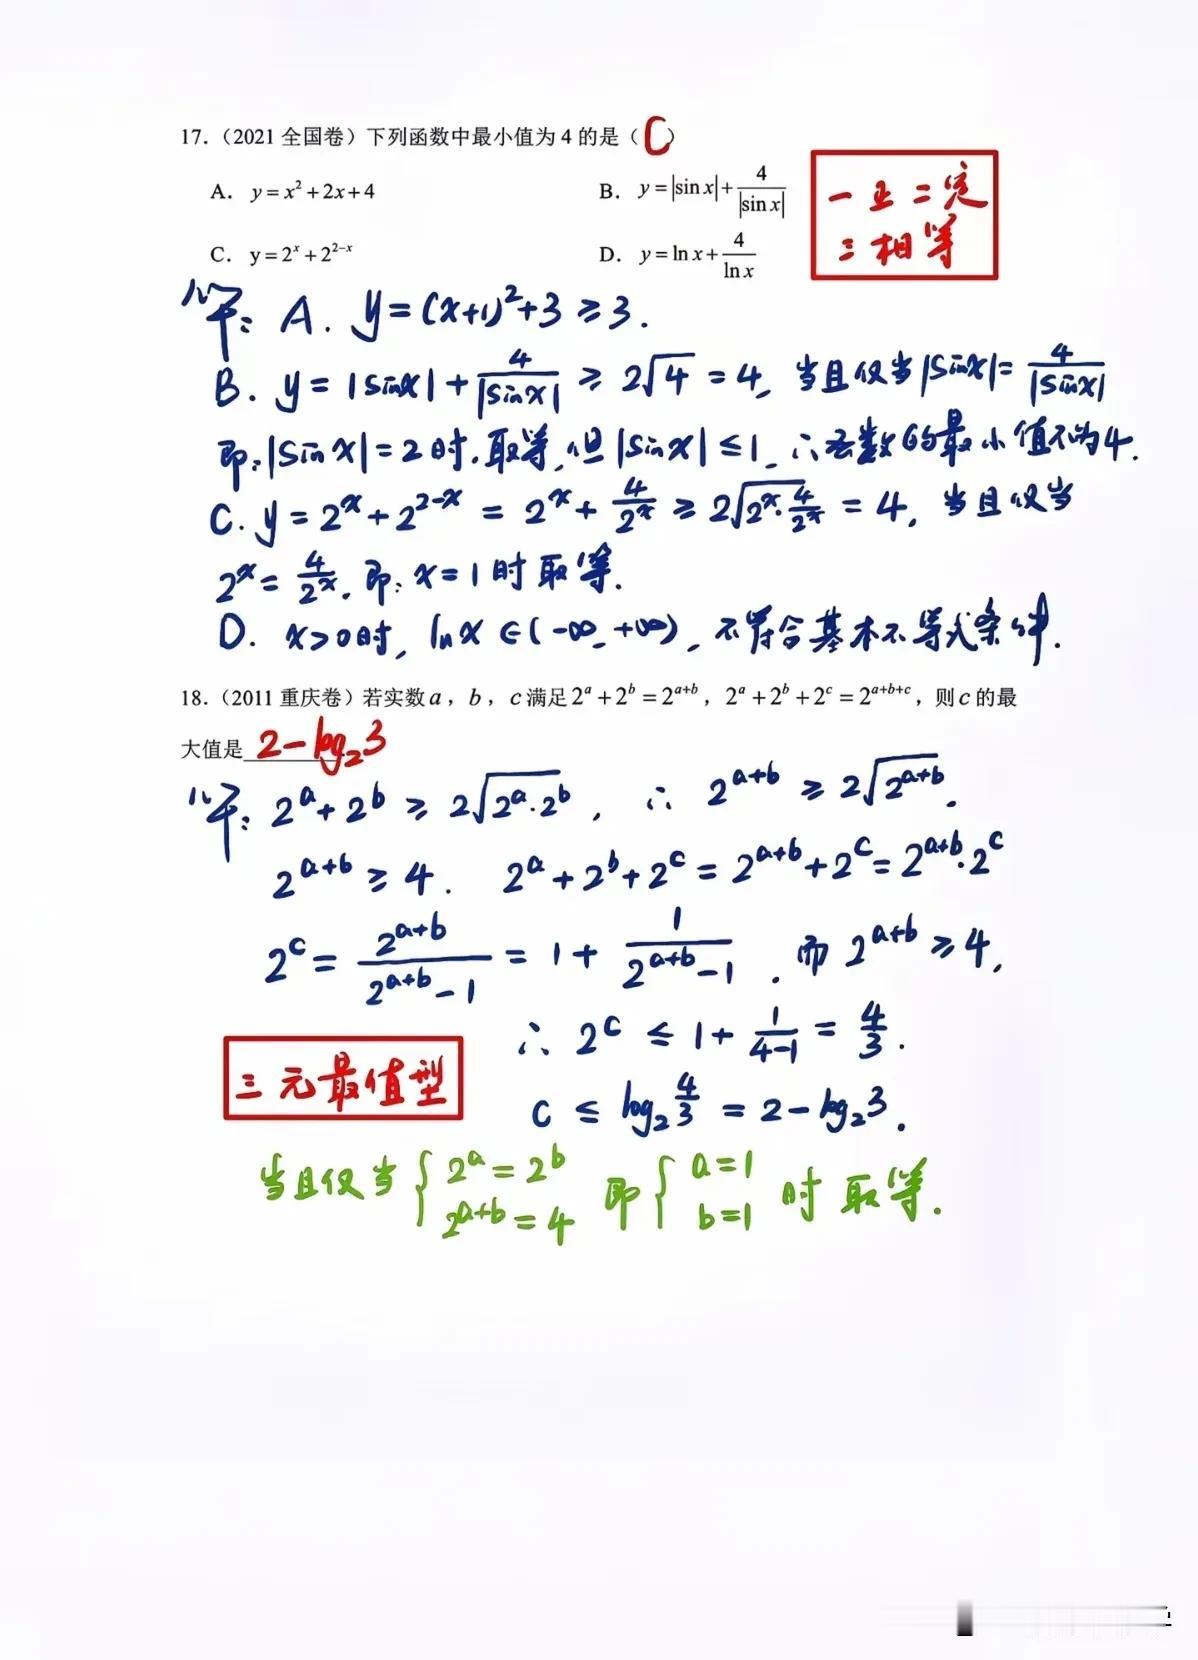 17.（2021 全国卷）下列函数中最小值为 4 的是（ C ）
A. y = x² + 2x + 4
B. y = |sin x| + 4/|sin x|
一正二定
三相等
C. y = 2^x + 2^(2-x)
D. y = ln x + 4/ln x
解: A. y = (x+1)² + 3 ≥ 3.
B. y = |sinx| + 4/|sinx| ≥ 2√4 = 4, 当且仅当 |sinx| = 4/|sinx|
即: |sinx| = 2 时, 取等, 但 |sinx| ≤ 1, ∴ 函数的最小值不为4.
C. y = 2^x + 2^(2-x) = 2^x + 4/2^x ≥ 2√(2^x · 4/2^x) = 4, 当且仅当
2^x = 4/2^x, 即: x = 1 时取等.
D. x>0时, lnx ∈ (-∞, +∞), 不符合基本不等式条件.
18.（2011 重庆卷）若实数 a，b，c 满足 2^a + 2^b = 2^(a+b)，2^a + 2^b + 2^c = 2^(a+b+c)，则 c 的最
大值是 2 - log₂3
解: 2^a + 2^b ≥ 2√(2^a · 2^b), ∴ 2^(a+b) ≥ 2√(2^(a+b)).
2^(a+b) ≥ 4. 2^a + 2^b + 2^c = 2^(a+b) + 2^c = 2^(a+b) · 2^c
2^c = 2^(a+b)/(2^(a+b) - 1) = 1 + 1/(2^(a+b) - 1), 而 2^(a+b) ≥ 4,
∴ 2^c ≤ 1 + 1/(4-1) = 4/3.
三元最值型
c ≤ log₂ 4/3 = 2 - log₂3.
当且仅当 { 2^a = 2^b 2^(a+b) = 4 即 { a=1 b=1 时取等.